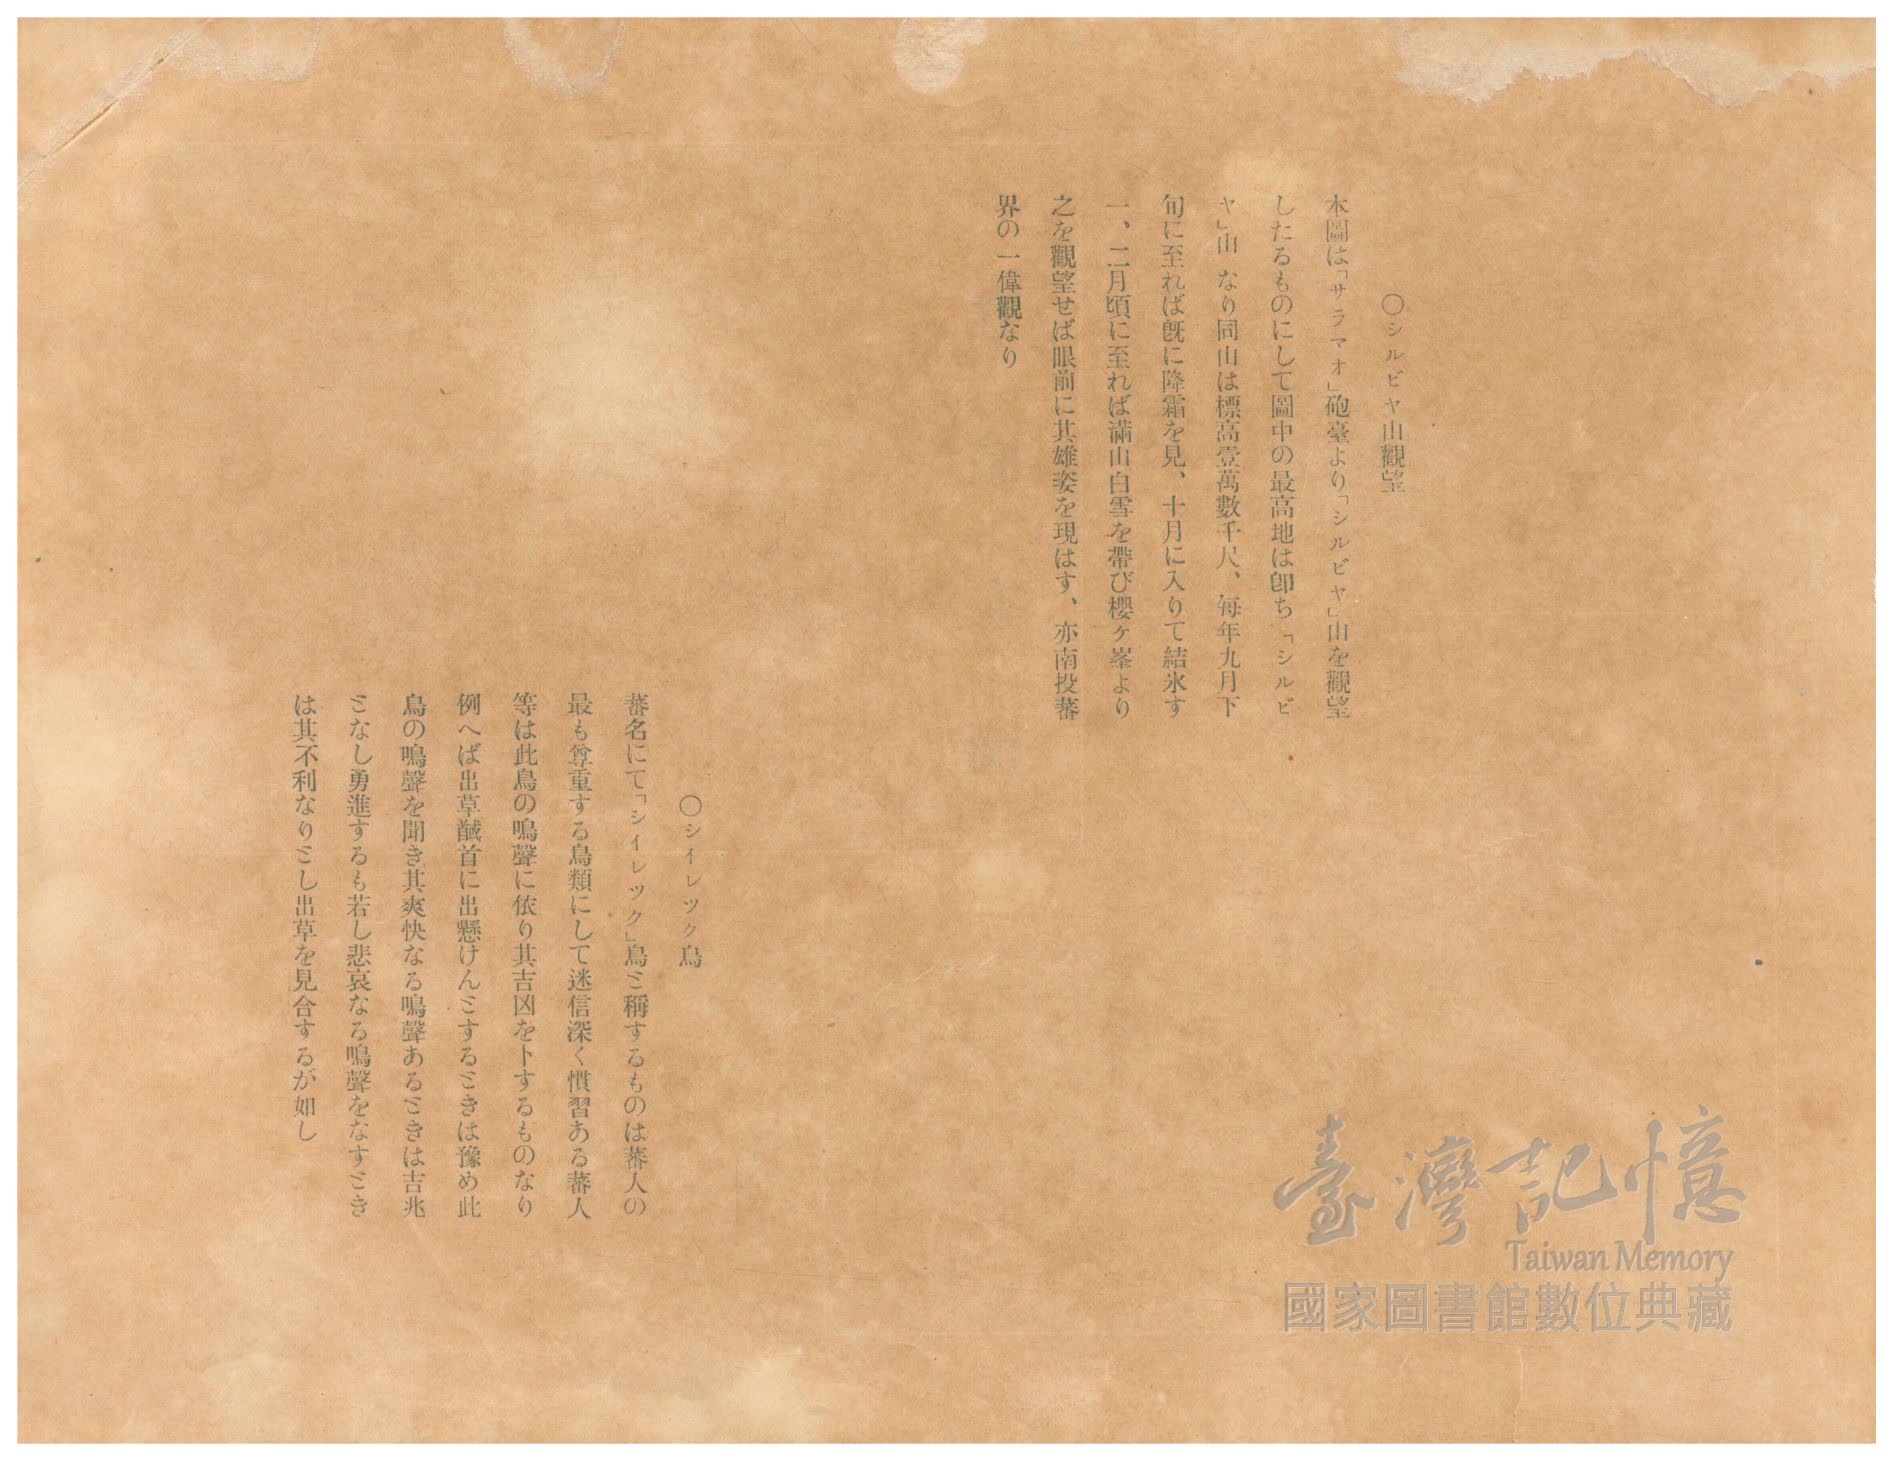 〇シルビヤ山觀望
本圖は「サラマオ」砲臺より「シルビヤ」山を觀望
したるものにして圖中の最高地は卽ち「シルビ
ヤ」山なり同山は標高壹萬數千尺、每年九月下
旬に至れば旣に降霜を見、十月に入りて結氷す
一、二月頃に至れば滿山白雪を帶び櫻ヶ峯より
之を觀望せば眼前に其雄姿を現はす、亦南投蕃
界の一偉觀なり
〇シイレツク鳥
蕃名にて「シイレツク」鳥ミ稱するものは蕃人の
最も尊重する鳥類にして迷信深く慣習ある蕃人
等は此鳥の鳴聲に依り其吉凶を卜するものなり
例へば出草馘首に出懸けんミするミきは豫め此
鳥の鳴聲を聞き其爽快なる鳴聲あるミきは吉兆
ミなし勇進するも若し悲哀なる鳴聲をなすミき
は其不利なりミし出草を見合するが如し
臺灣記憶
Taiwan Memory
國家圖書館數位典藏